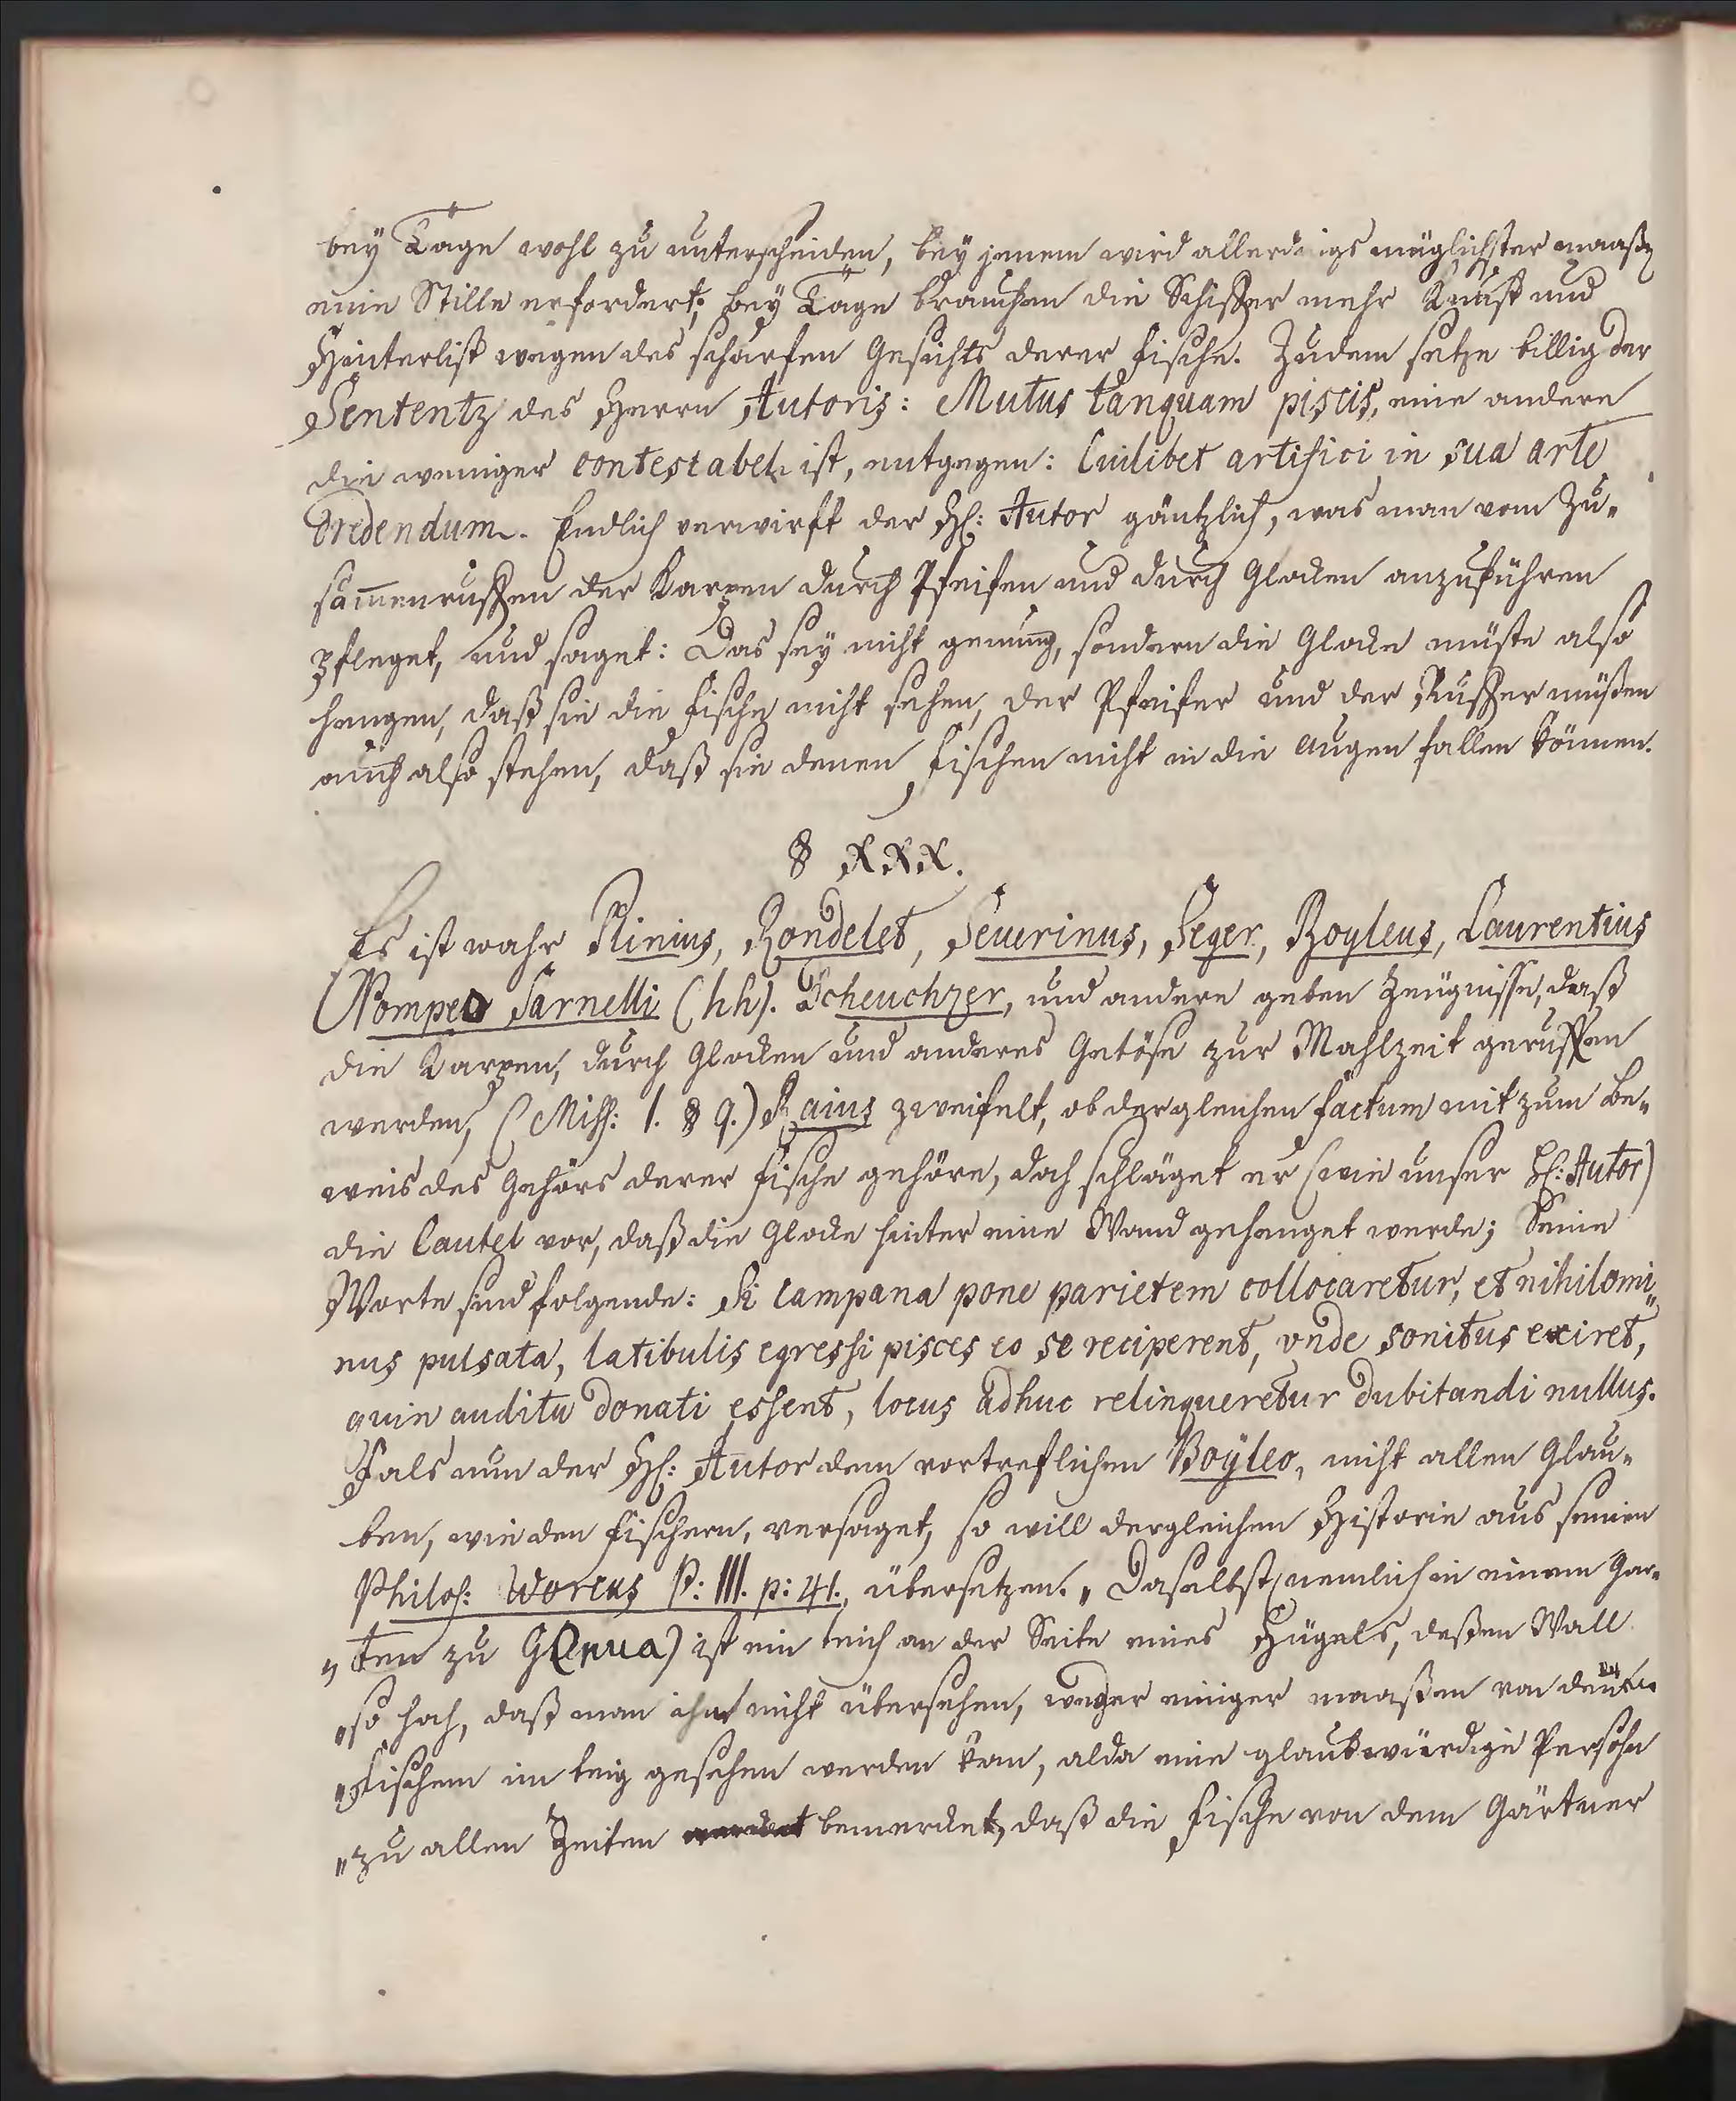 bey Tage wohl zu unterscheiden, bey jenem wird allerdings müglichster maaßen
eine Stille erfordert; bey Tage brauchen die Schißer mehr Kunst und
Hinterlist wegen des scharfen Gesichts derer Fische. Zudem setze billig der
Sententz des Herrn Autoris: Mutus tanquam piscis, eine andere
die weniger contestabel ist, entgegen: Cuilibet artifici in sua arte
credendum. Endlich verwirft der H: Autor gäntzlich, was man vom Zu-
sam̄enruffen der Karpen durch Pfeifen und durch Glocken anzuführen
pfleget, und saget: Das sey nicht genung, sondern die Glocke müste also
hangen, daß sie die Fische nicht sehen, der Pfeifer und der Ruffer müßen
auch also stehen, daß sie denen Fischen nicht in die Augen fallen können.
§ XXX.
Es ist wahr Plinius, Rondelet, Severinus, Seger, Boyleus, Laurentius
(Pompeo Sarnelli (hh). Scheuchzer, und andere geben Zeugnisse, daß
die Karpen, durch Glocken und anderes Getöse zur Mahlzeit geruffen
werden, (Miss: 1. § 9.) Raius zweifelt, ob dergleichen factum mit zum Be-
weis des Gehörs derer Fische gehöre, doch schläget er (wie unser H: Autor)
die Cautel vor, daß die Glocke hinter eine Wand gehanget werde; Seine
Worte sind folgende: Si campana pone parietem collocaretur, et nihilomi-
nus pulsata, latibulis egressi pisces eo se reciperent, vnde sonitus exiret,
quin auditu donati essent, locus adhuc relinqueretur dubitandi nullus.
Fals nun der H: Autor dem vortreflichen Boyleo, nicht allen Glau-
ben, wie den Fischern, versaget, so will dergleichen Historie aus seinen
Philos: Worcks P: III. p: 41. übersetzen. „Daselbst (nemlich in einem Gar-
„ten zu Genua) ist ein teich an der Seite eines Hügels, deßen Wall
„so hoch, daß man ihn nicht übersehen, weder einiger maaßen von den
„Fischen im teig gesehen werden kan, alda eine glaubwürdige Persohn
„zu allen Zeiten bemercket, daß die Fische von dem Gärtner